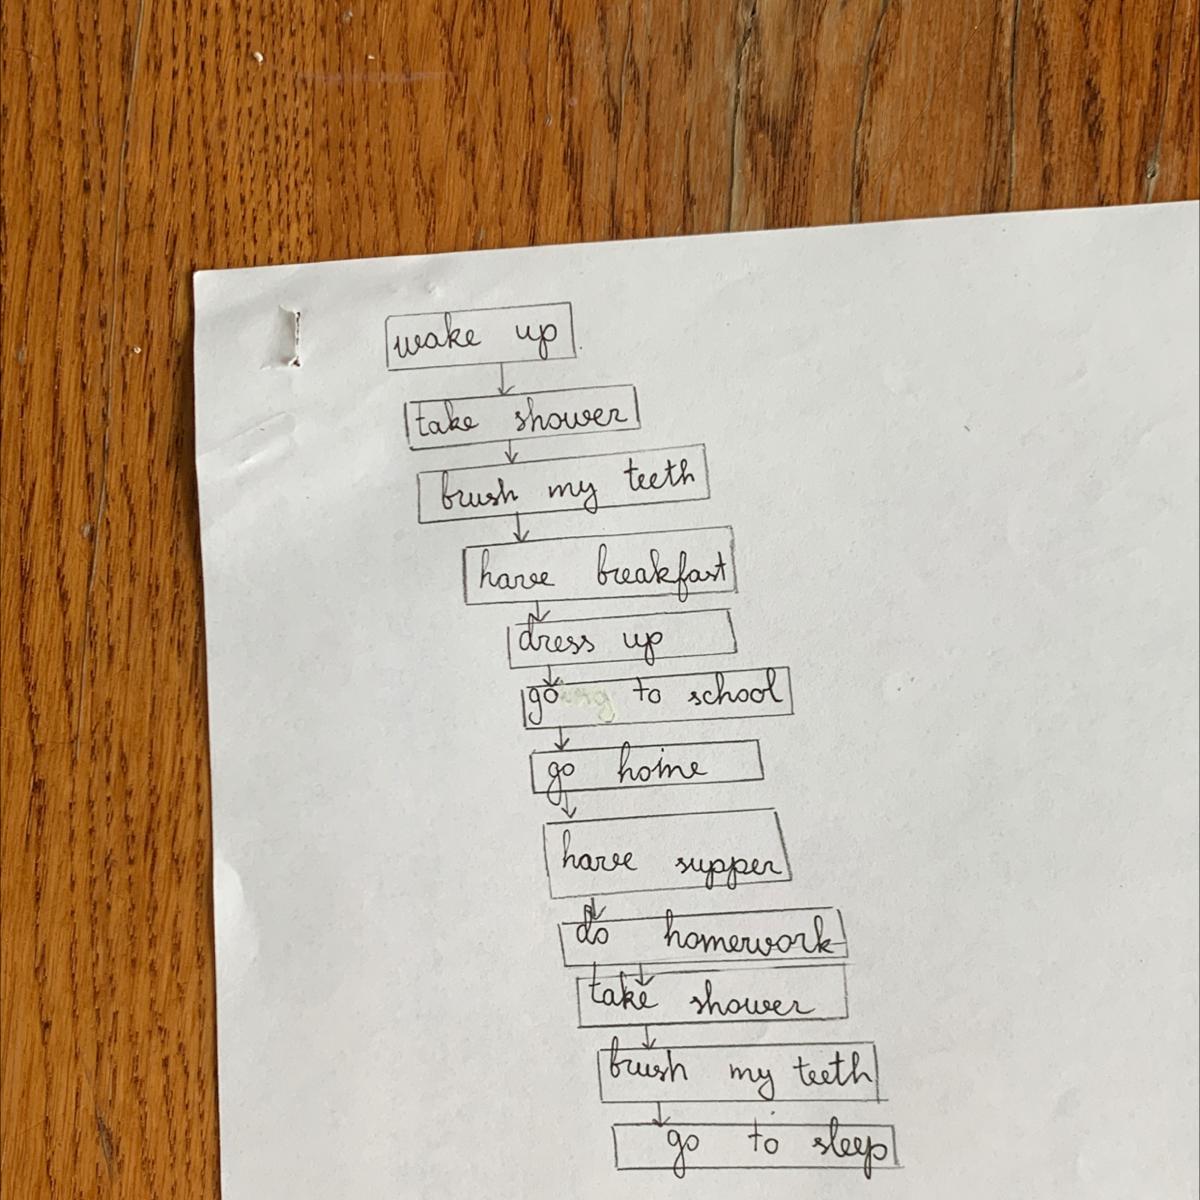 wake up
take shower
brush my teeth
have breakfast
dress up
go to school
go home
have supper
do homework
take shower
brush my teeth
go to sleep